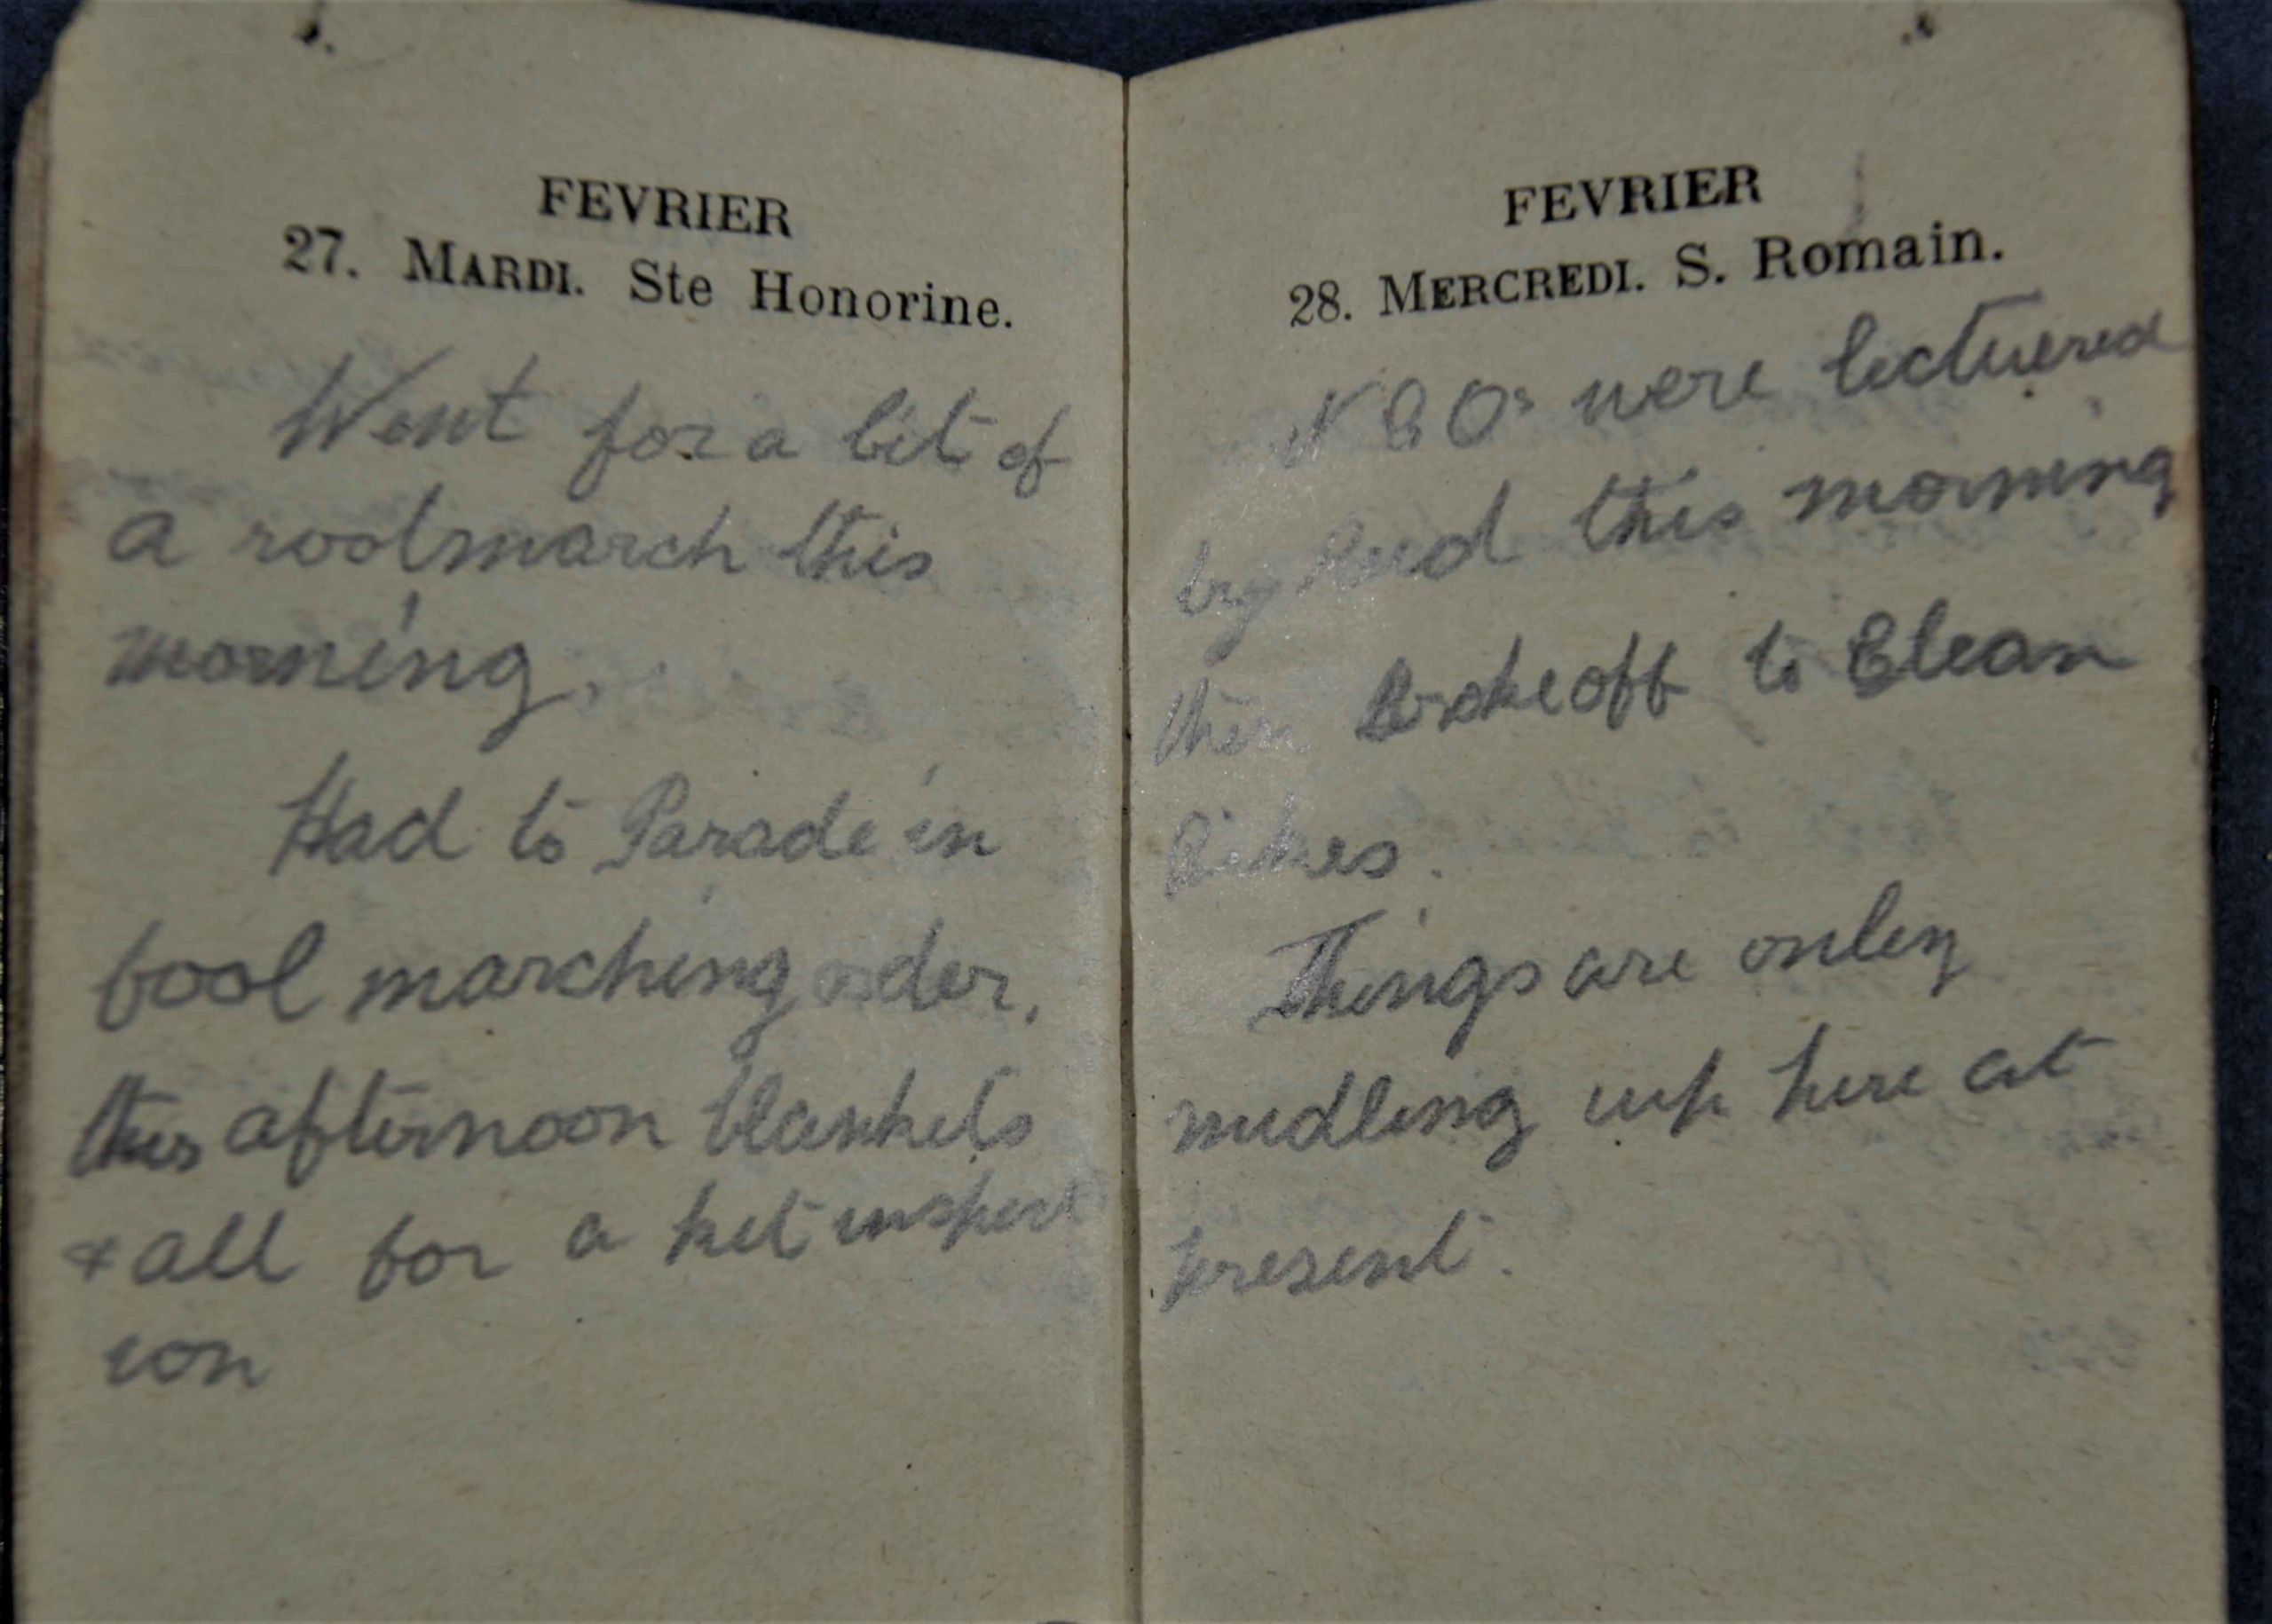 FEVRIER
27. MARDI. Ste Honorine.
Went for a bit of
a rootmarch this
morning.
Had to Parade in
fool marching order,
this afternoon blankets
& all for a kit inspect
ion
FEVRIER
28. MERCREDI. S. Romain.
N C Os were lectuered
by Reid this morning
then Broke off to Clean
Bikes.
Things are onley
midling up here at
present.